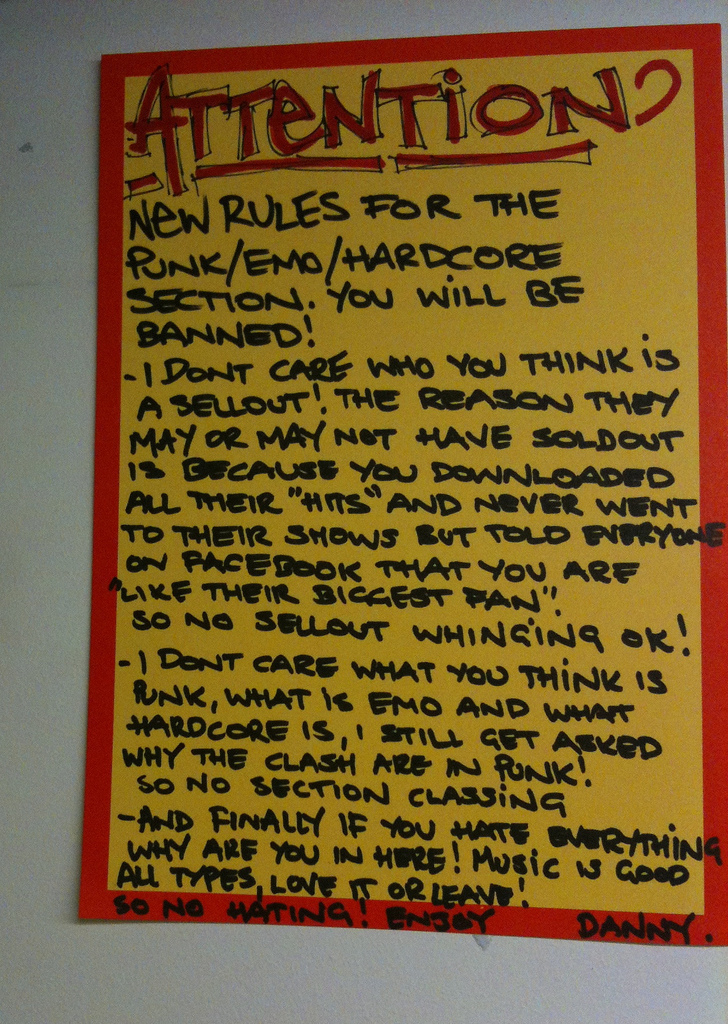 ATTENTION
NEW RULES FOR THE
PUNK/EMO/HARDCORE
SECTION. YOU WILL BE
BANNED!
- I DONT CARE WHO YOU THINK IS
A SELLOUT! THE REASON THEY
MAY OR MAY NOT HAVE SOLDOUT
IS BECAUSE YOU DOWNLOADED
ALL THEIR "HITS" AND NEVER WENT
TO THEIR SHOWS BUT TOLD EVERYONE
ON FACEBOOK THAT YOU ARE
"LIKE THEIR BIGGEST FAN".
SO NO SELLOUT WHINGING OK!
- I DONT CARE WHAT YOU THINK IS
PUNK, WHAT IS EMO AND WHAT
HARDCORE IS, I STILL GET ASKED
WHY THE CLASH ARE IN PUNK!
SO NO SECTION CLASSING
- AND FINALLY IF YOU HATE EVERYTHING
WHY ARE YOU IN HERE! MUSIC IS GOOD
ALL TYPES, LOVE IT OR LEAVE!
SO NO HATING! ENJOY DANNY.